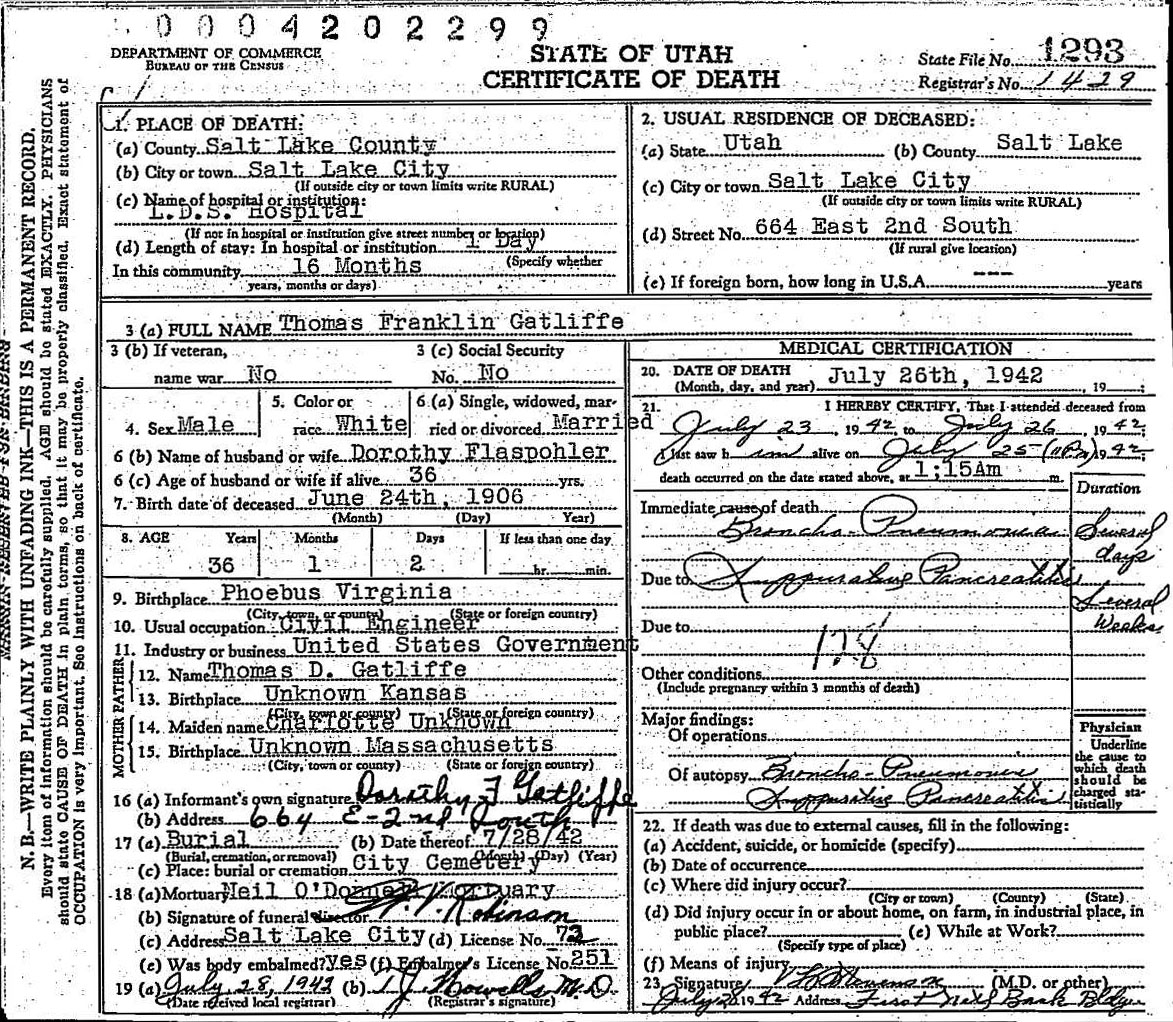 0004202299
DEPARTMENT OF COMMERCE
BUREAU OF THE CENSUS
STATE OF UTAH
CERTIFICATE OF DEATH
State File No. 1293
Registrar's No. 1429
N.B.—WRITE PLAINLY WITH UNFADING INK—THIS IS A PERMANENT RECORD.
Every item of information should be carefully supplied. AGE should be stated EXACTLY. PHYSICIANS
should state CAUSE OF DEATH in plain terms, so that it may be properly classified. Exact statement of
OCCUPATION is very important. See instructions on back of certificate.
1. PLACE OF DEATH:
(a) County Salt Lake County
(b) City or town Salt Lake City
(If outside city or town limits write RURAL)
(c) Name of hospital or institution:
L.D.S. Hospital
(If not in hospital or institution give street number or location)
(d) Length of stay: In hospital or institution 1 Day
(Specify whether
In this community 16 Months
years, months or days)
2. USUAL RESIDENCE OF DECEASED:
(a) State Utah (b) County Salt Lake
(c) City or town Salt Lake City
(If outside city or town limits write RURAL)
(d) Street No. 664 East 2nd South
(If rural give location)
(e) If foreign born, how long in U.S.A. --- years
3 (a) FULL NAME Thomas Franklin Gatliffe
3 (b) If veteran, 3 (c) Social Security
name war No No. No
4. Sex Male 5. Color or race White 6 (a) Single, widowed, married or divorced Married
6 (b) Name of husband or wife Dorothy Flaspohler
6 (c) Age of husband or wife if alive 36 yrs.
7. Birth date of deceased June 24th, 1906
(Month) (Day) Year)
8. AGE Years Months Days If less than one day
36 1 2 hr. min.
9. Birthplace Phoebus Virginia
(City, town, or county) (State or foreign country)
10. Usual occupation Civil Engineer
11. Industry or business United States Government
FATHER
12. Name Thomas D. Gatliffe
13. Birthplace Unknown Kansas
(City, town or county) (State or foreign country)
MOTHER
14. Maiden name Charlotte Unknown
15. Birthplace Unknown Massachusetts
(City, town or county) (State or foreign country)
16 (a) Informant's own signature Dorothy F Gatliffe
(b) Address 664 E-2nd South
17 (a) Burial (b) Date thereof 7/28/42
(Burial, cremation, or removal) (Month) (Day) (Year)
(c) Place: burial or cremation City Cemetery
18 (a) Mortuary Neil O'Donnell Mortuary
(b) Signature of funeral director Robinson
(c) Address Salt Lake City (d) License No. 73
(e) Was body embalmed? yes (f) Embalmer's License No. 251
19 (a) July 28, 1942 (b) T J Howells M.D
(Date received local registrar) (Registrar's signature)
MEDICAL CERTIFICATION
20. DATE OF DEATH July 26th, 1942, 19
(Month, day, and year)
21. I HEREBY CERTIFY, That I attended deceased from
July 23, 1942, to July 26, 1942;
I last saw h im alive on July 25-(11PM) 1942
death occurred on the date stated above, at 1;15Am m.
Duration
Immediate cause of death
Broncho-Pneumonia Several days
Due to Suppurative Pancreatitis Several Weeks
Due to
128
Other conditions
(Include pregnancy within 3 months of death)
Major findings:
Of operations
Of autopsy Broncho-Pneumonia
Suppurative Pancreatitis
Physician
Underline
the cause to
which death
should be
charged sta-
tistically
22. If death was due to external causes, fill in the following:
(a) Accident, suicide, or homicide (specify)
(b) Date of occurrence
(c) Where did injury occur?
(City or town) (County) (State)
(d) Did injury occur in or about home, on farm, in industrial place, in
public place? (e) While at Work?
(Specify type of place)
(f) Means of injury
23. Signature Stevenson (M.D. or other)
July 1942 Address First Natl Bank Bldg